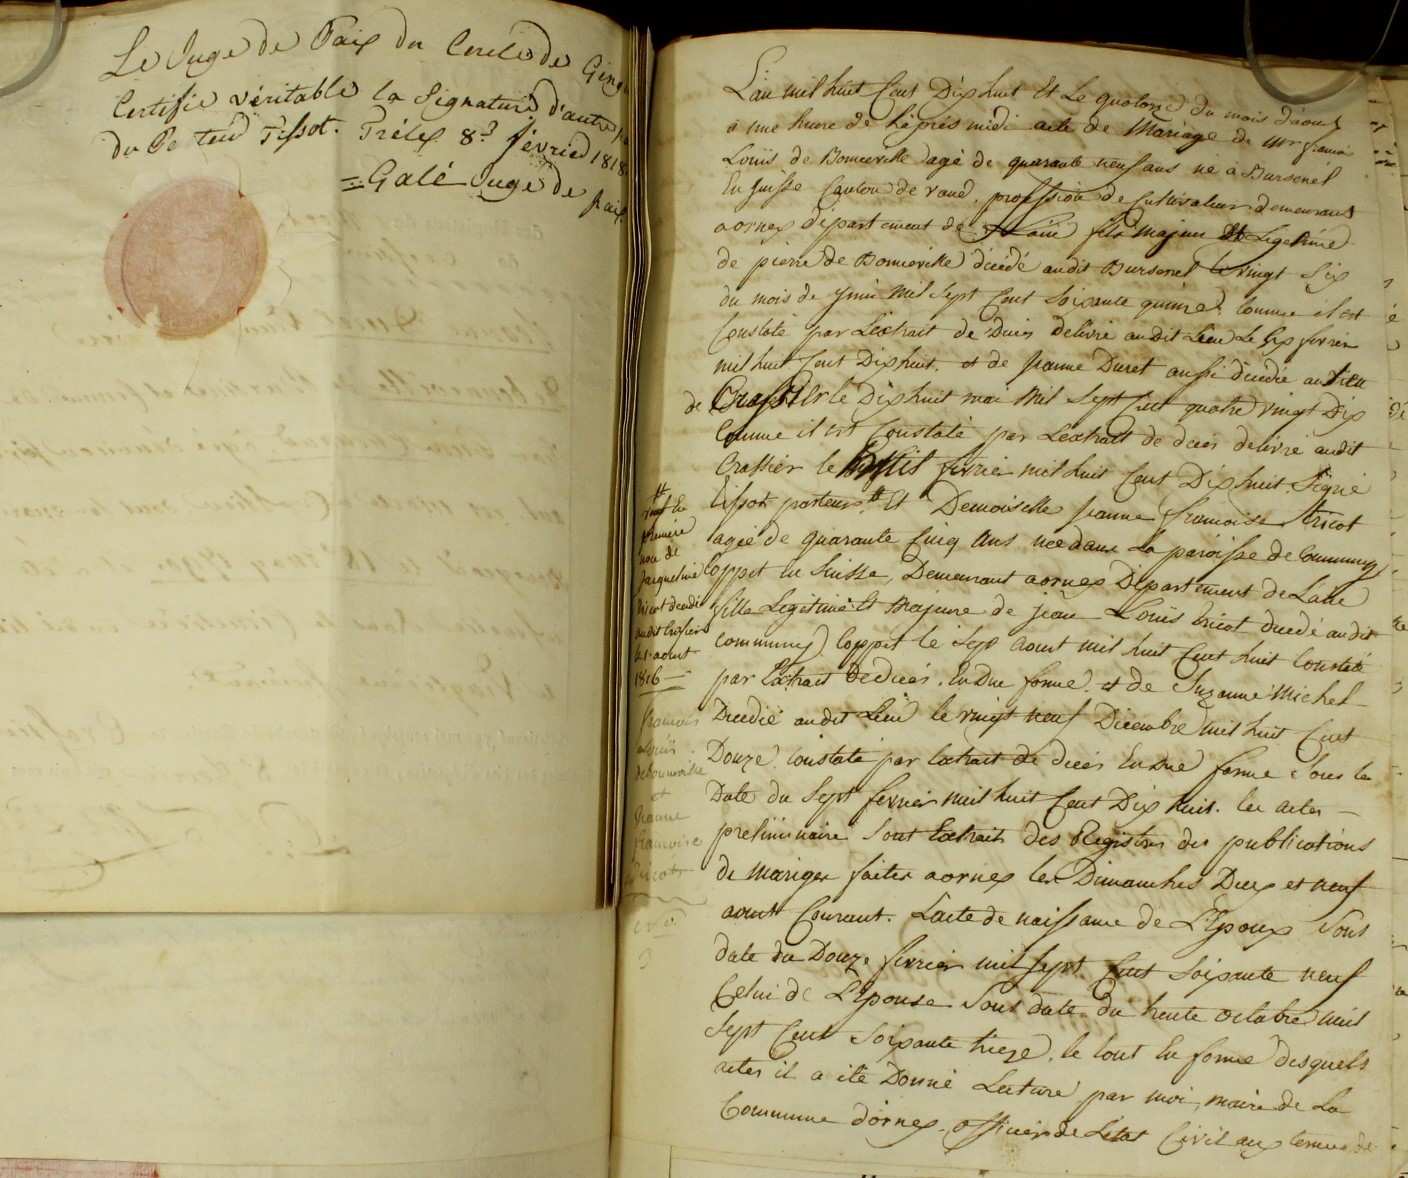 Le Juge de Paix du Cercle de Ging
Certifie véritable la Signature d'autre pa
du Pe teur Tissot. Trélex 8.e février 1818
=Galé Juge de paix
L'an mil huit Cent Dixhuit Et Le quatorze du mois d'aout
a une heure de Lépres midi acte de Mariage de Mr francoi
Louïs de Bonneville agé de quarante neuf ans né à Bursenel
En Suisse Canton de vaud, profession de Cultivateur demeurant
a ornex département de Lain fils majeur Et Legetime
de pierre de Bonneville décédé audit Bursenel le vingt Six
du mois de juin mil Sept Cent Soixante quinze, comme il est
Constaté par Lextrait de Duis delivré audit Lieu Le Six fevrier
mil huit Cent Dixhuit. et de Jeanne Duret aussi décédée au Lieu
de Crassier le Dixhuit mai Mil Sept Cent quatre vingt Dix
Comme il est Constaté par Lextrait de duis delivré audit
Crassier le huit fevrier mil huit Cent Dixhuit. Signé
tissot pasteur # Et Demoiselle Jeanne francoise tricot
agée de quarante Cinq Ans née dans La paroisse de Commugny
Coppet en Suisse, Demeurant a ornex Département de Lain
fille Legitime Et Majeure de jean Louïs tricot décédé audit
Commugny Coppet le Sept Aoust mil huit Cent huit Constaté
par Extrait de dués. En Due forme. et de Suzanne Michel
Decedée audit Lieu le vingt neuf Décembre mil huit Cent
Douze Constaté par Extrait de duées En Due forme Sous la
Date du Sept fevrier mil huit Cent Dix huit. les actes
preliminaire Sont Extraits des Registres des publications
de mariges faites a ornex les Dimanches Deux et neuf
aoust Courant. L'acte de naissance de L'Epoux Sous
date du Douze fevrier mil Sept Cent Soixante neuf
Celui de L'Epouse Sous date du trente Octobre mil
Sept Cent Soixante treize, le tout En forme desquels
actes il a été Donné Lecture par moi, maire de La
Commune d'ornex, Officier de L'état Civil aux termes de
#
veuf En
premiere
noce de
Jaqueline
décedée
audit Crassier
le 1 aout
1816
francois
Louïs
de bonneville
et
Jeanne
francoise
tricot